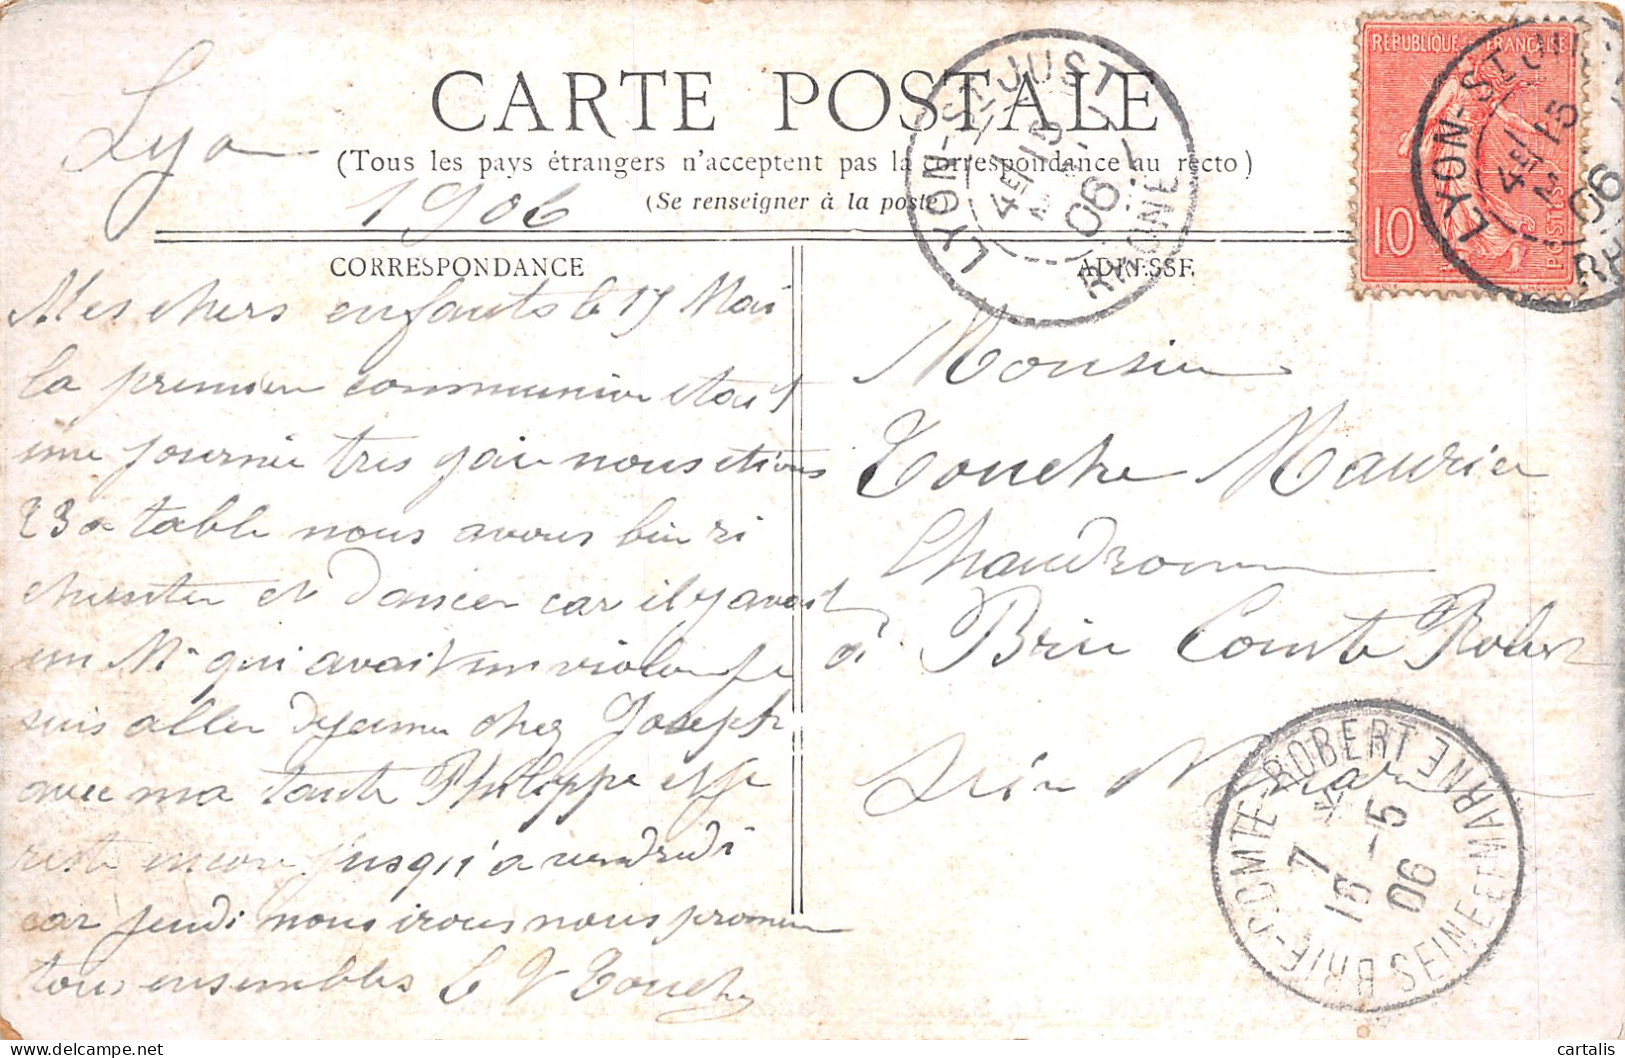 CARTE POSTALE
(Tous les pays étrangers n'acceptent pas la correspondance au recto)
(Se renseigner à la poste)
Lyon
1906
CORRESPONDANCE
Mes chers enfants le 15 Mai
la premier communion etait
une journée tres gaie nous etions
23 a table nous avons bien ri
chanter et dancer car il y avait
un Mr qui avait un violon je
suis aller dejeuner chez Joseph
avec ma tante Philippe et je
reste encore jusqu'a vendredi
car jeudi nous irons nous promener
tous ensembles E V Touche
ADRESSE
Monsieur
Touche Maurice
Chaudronnier
à Brie Comte Robert
Seine Marne
LYON-ST JUST
4E/ 15
06
RHONE
REPUBLIQUE FRANÇAISE
10
POSTES
LYON-ST JUST
4E/ 15
06
RH
BRIE-COMTE-ROBERT SEINE ET MARNE
7
16 -5
06
cartalis